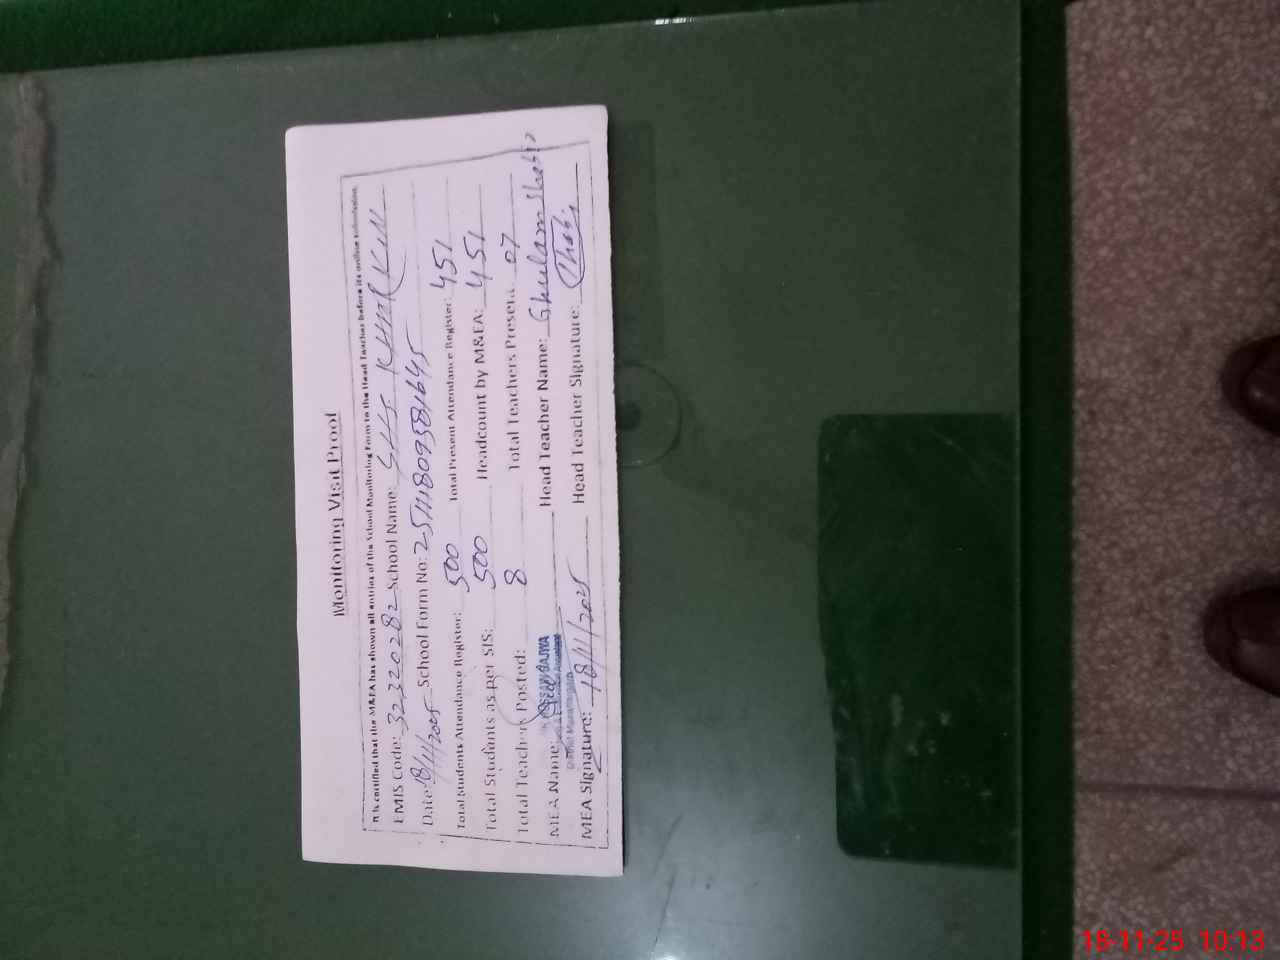 Monitoring Visit Proof
It is certified that the M&EA has shown all entries of the School Monitoring Form to the Head Teacher before its online submission.
EMIS Code: 32320282 School Name: GHS
Date: 18/11/2025 School Form No:
Total Students Attendance Register: 500 Total Present Attendance Register: 451
Total Students as per SIS: 500 Headcount by M&EA: 451
Total Teachers Posted: 8 Total Teachers Present: 07
MEA Name: BAJWA Head Teacher Name: Ghulam Shabir
MEA Signature: 18/11/2025 Head Teacher Signature:
18-11-25 10:13